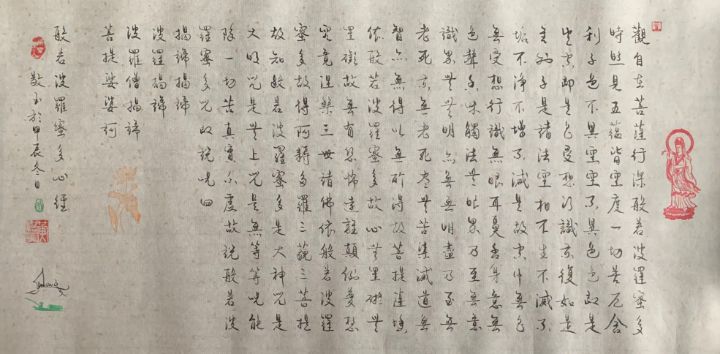 觀自在菩薩行深般若波羅蜜多
時照見五蘊皆空度一切苦厄舍
利子色不異空空不異色色即是
空空即是色受想行識亦復如是
舍利子是諸法空相不生不滅不
垢不淨不增不減是故空中無色
無受想行識無眼耳鼻舌身意無
色聲香味觸法無眼界乃至無意
識界無無明亦無無明盡乃至無
老死亦無老死盡無苦集滅道無
智亦無得以無所得故菩提薩埵
依般若波羅蜜多故心無罣礙無
罣礙故無有恐怖遠離顛倒夢想
究竟涅槃三世諸佛依般若波羅
蜜多故得阿耨多羅三藐三菩提
故知般若波羅蜜多是大神咒是
大明咒是無上咒是無等等咒能
除一切苦真實不虛故說般若波
羅蜜多咒即說咒曰
揭諦揭諦
波羅揭諦
波羅僧揭諦
菩提娑婆訶
般若波羅蜜多心經
敬書於甲辰冬日